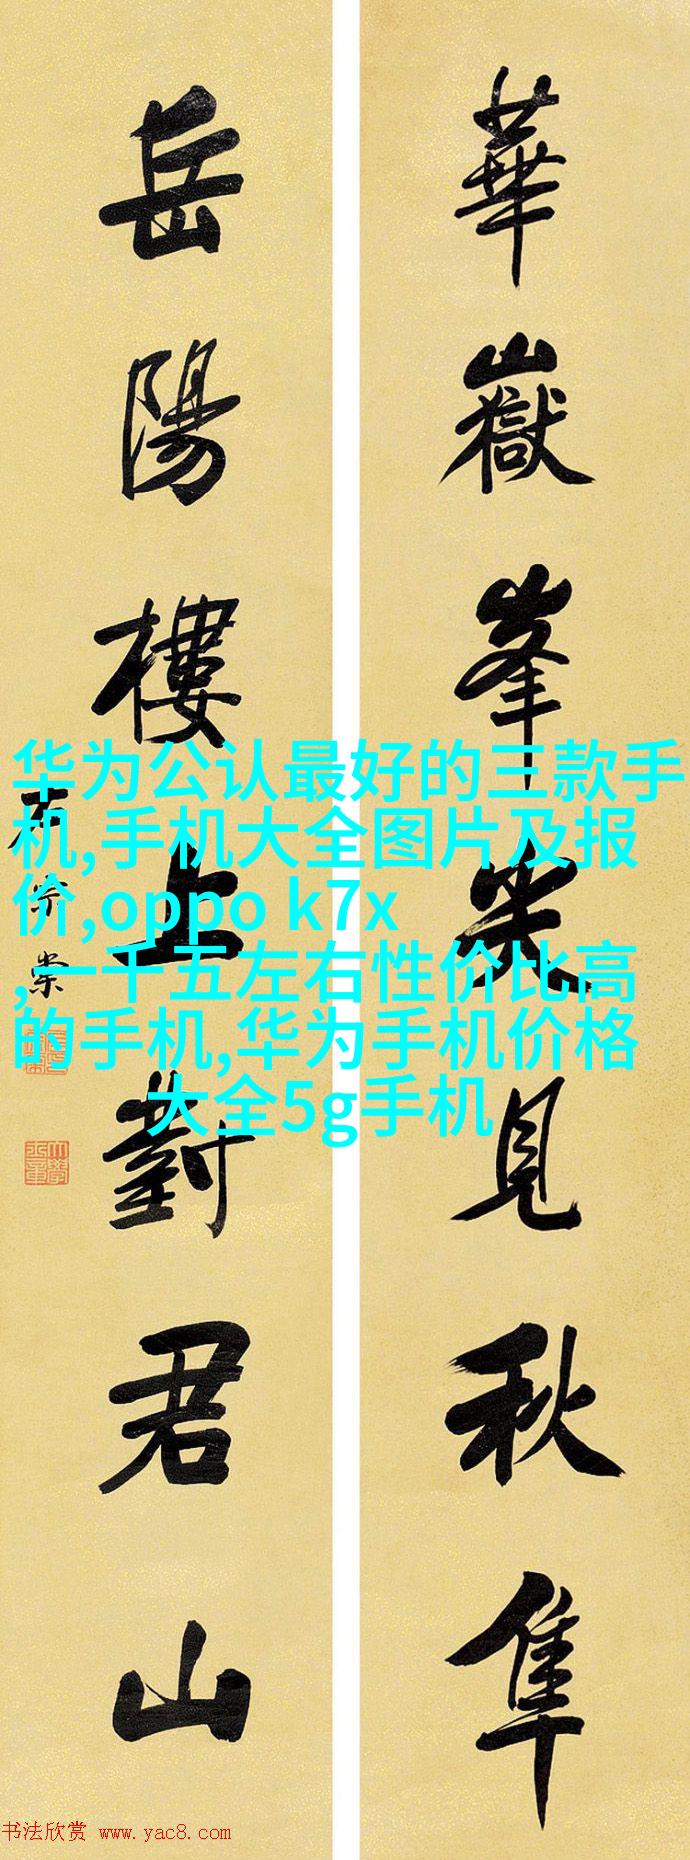 華嶽峯尖見秋隼
岳陽樓上對君山
左宗棠
华为公认最好的三款手
机,手机大全图片及报
价,oppo k7x
,一千五左右性价比高
的手机,华为手机价格
大全5g手机
书法欣赏 www.yac8.com